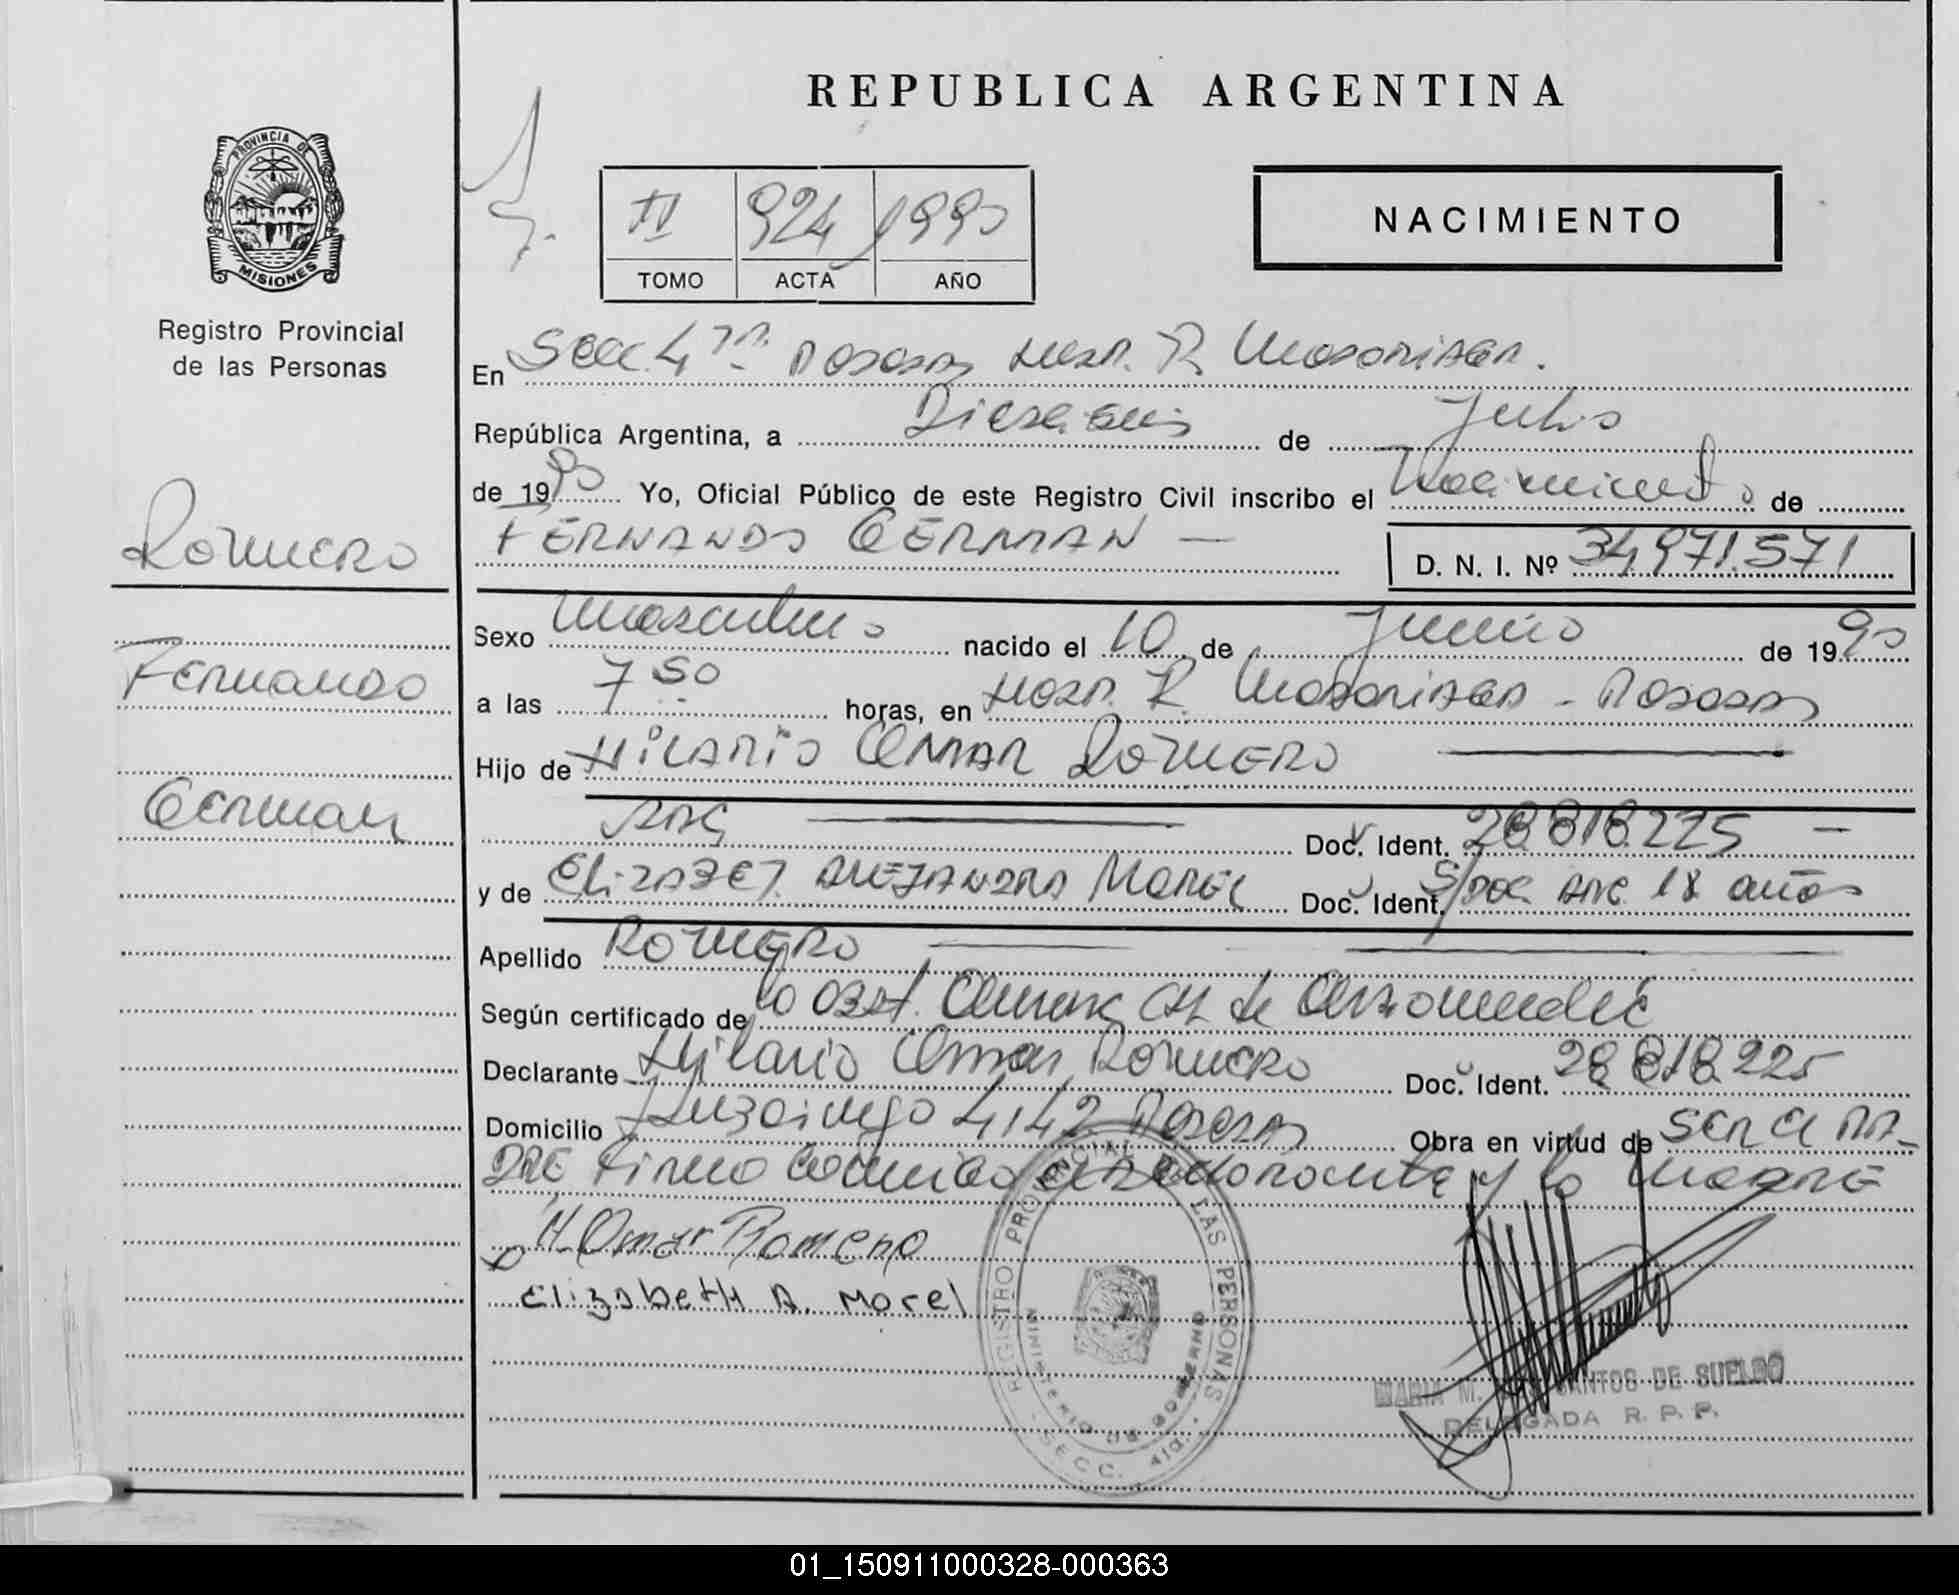 REPUBLICA ARGENTINA
PROVINCIA DE
MISIONES
Registro Provincial
de las Personas
IV 924 1990
TOMO ACTA AÑO
NACIMIENTO
En Secc. 4ta Posadas Hosp. R. Madariaga.
República Argentina, a Dieciseis de Julio
de 1990 Yo, Oficial Público de este Registro Civil inscribo el Nacimiento de
FERNANDO GERMAN — D. N. I. Nº 34.971.571
Romero
Fernando
German
Sexo Masculino nacido el 10 de Junio de 1990
a las 7 50 horas, en Hosp. R. Madariaga - Posadas
Hijo de HILARIO OMAR ROMERO
ARG Doc. Ident. 28.818.225 —
y de ELIZABET ALEJANDRA MOREL Doc. Ident. S/Doc ARG. 18 años
Apellido ROMERO
Según certificado de la Obst.
Declarante Hilario Omar Romero Doc. Ident. 28.818.225
Domicilio Ituzaingo 4142 Posadas Obra en virtud de ser el PA-
DRE Firma la MADRE
H. Omar Romero
Elizabeth A. Morel
REGISTRO PROVINCIAL DE LAS PERSONAS
MINISTERIO DE GOBIERNO
SECC. 4ta.
MARIA M. SANTOS DE SUELDO
DELEGADA R. P. P.
01_150911000328-000363